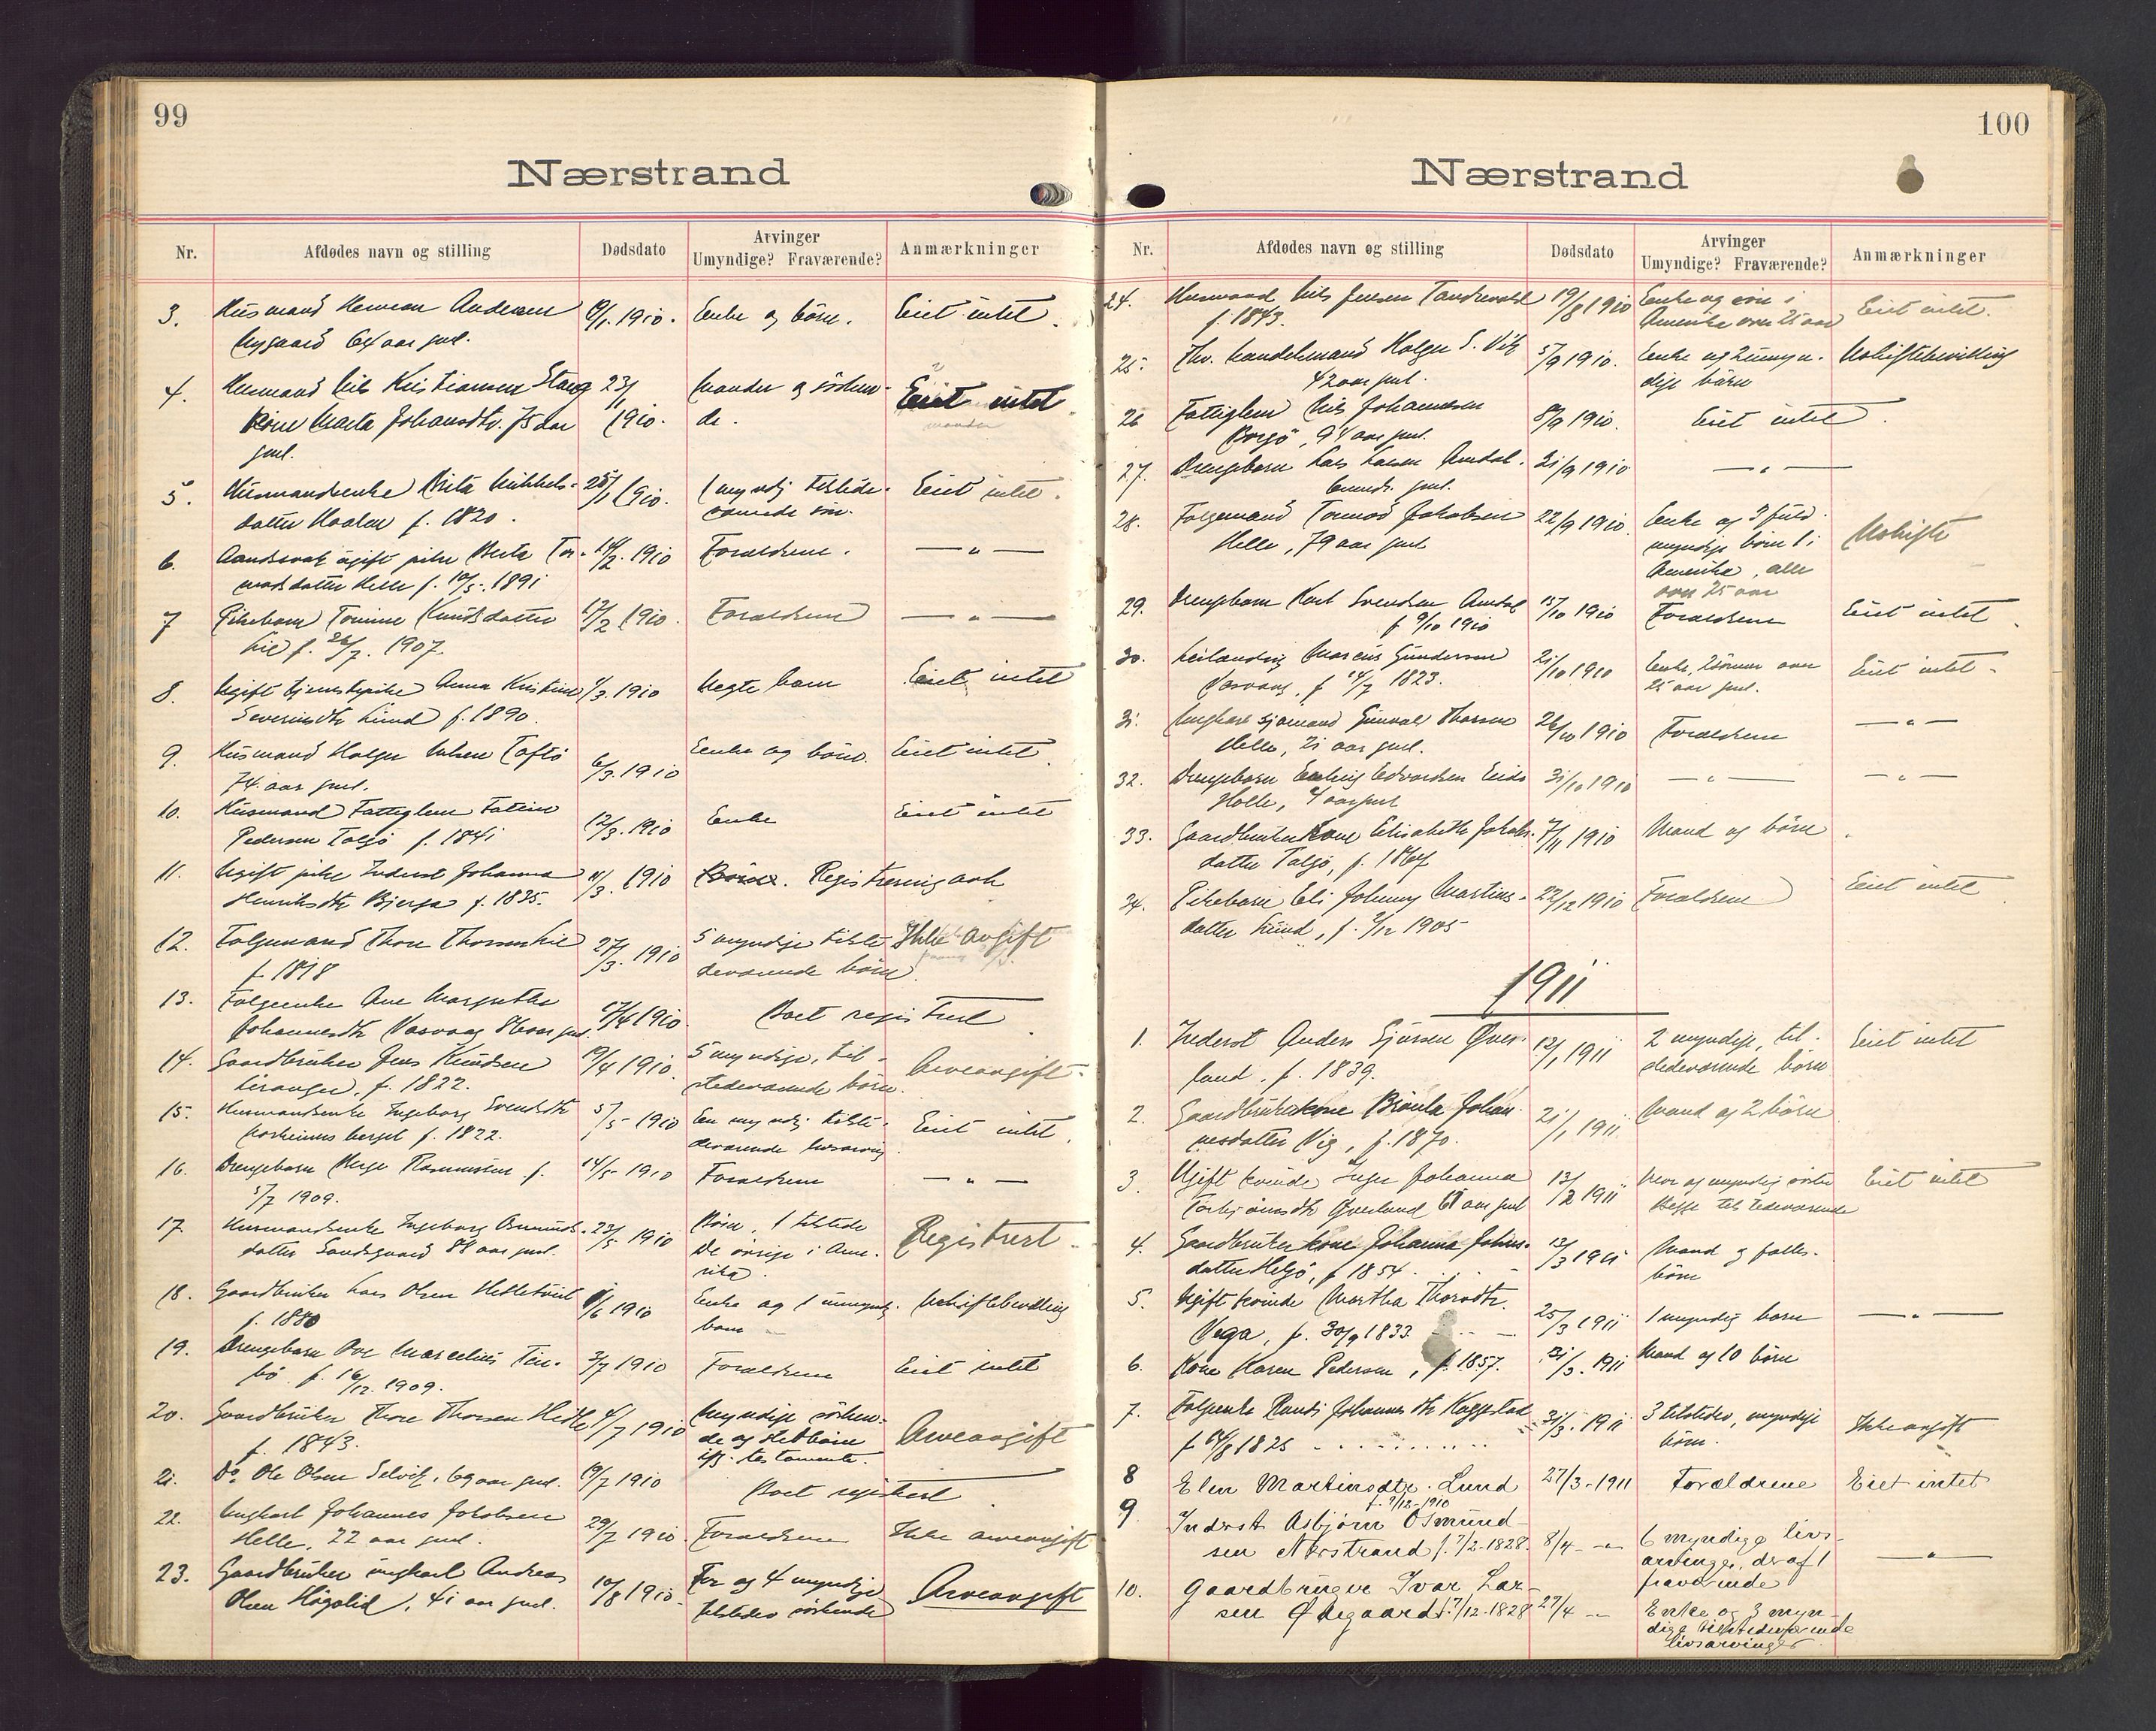 99
Nærstrand
Nr. Afdødes navn og stilling Dødsdato Arvinger Umyndige? Fraværende? Anmærkninger
3. Husmand Andersen 1910. Enke og børn. Eiet intet.
Nygaard 64 aar gml.
4. Husmand Nils Kristiansen Stang 23/1 søsken- Eiet intet
kone Marta Johansdtr. 75 aar 1910. de.
gml.
5. Husmandsenke Brita Mikkels- 25/1 1910. 1 myndig tilstede- Eiet intet.
datter f. 1820. værende søn.
6. Aandssvak ugift pike Berta Tor- 14/2. 1910 Forældrene. — " —
modsdatter Helle f. 10/5. 1891
7 Pikebarn Tomine Knudsdatter 17/2 1910. Forældrene — " —
Lie f. 26/7. 1907.
8. Ugift tjenestepike Anna Kristine /3. 1910 Uegte barn Eiet intet
Severinsdtr Lund f. 1890.
9. Husmand Holger Toftø 6/3. 1910 Enke og børn. Eiet intet.
74 aar gml.
10. Husmand Fattiglem 12/3. 1910 Enke Eiet intet
Pedersen Talgø f. 1841
11. Ugift pike Inderst Johanna /3. 1910 Registrering avh
Henriksdtr f. 1835.
12. Folgemand Thore Thorsen Lie 27/3. 1910 5 myndige tilste- Ikke avgift
f. 1818 deværende børn.
13. Folgeenke Ane Margrethe
Johannesdtr Vasvaag 86 aar gml. 17/4 1910. Boet registrert.
14. Gaardbruker Jens Knudsen 19/4 1910. 5 myndige, til- Arveavgift.
Leranger, f. 1822. stedeværende børn.
15. Husmandsenke Ingeborg Svendsdtr 5/5 1910 En myndig tilste- Eiet intet.
f. 1822. deværende livsarving.
16. Drengebarn Rasmussen f. 14/5 1910 Forældrene — " —
5/7 1909.
17. Husmandsenke Ingeborg Osmunds- 23/5 1910 Børn, 1 tilstede Registrert.
datter Sandsgaard 88 aar gml. De øvrige i Ame-
rika.
18. Gaardbruker Lars Olsen Hetletvet /6 1910 Enke og 1 umyndig Uskiftebevilling
f. 1880 barn
19. Drengebarn Ove Marcelius Tin- 3/7 1910 Forældrene Eiet intet
bø. f. 16/12. 1909.
20. Gaardbruker Thore Thorsen Helle 4/7 1910 Myndige søsken- Arveavgift
f. 1843. de og
ifg. testamente.
21. Do Ole Olsen Selvik, 69 aar gml. 19/7 1910 Boet registrert.
22. Ungkarl Johannes Jakobsen 29/7 1910 Forældrene Ikke arveavgift
Helle, 22 aar gml.
23. Gaardbruker ungkarl Andreas 10/8 1910. Far og 4 myndige Arveavgift
Olsen Høgalid, 41 aar gml. tilstedev søskende
100
Nærstrand
Nr. Afdødes navn og stilling Dødsdato Arvinger Umyndige? Fraværende? Anmærkninger
24. Husmand Nils Jensen 19/8 1910 Enke og søn i Eiet intet.
f. 1843. Amerika over 25 aar
25. Fhv. handelsmand Holger S. Vik 5/9 1910. Enke og 2 umyn- Uskiftebevilling
42 aar gml. dige børn
26 Fattiglem Nils Johannesen 8/9 1910. Eiet intet.
Borgø, 94 aar gml.
27. Drengebarn Lars Larsen Amdal. 21/9 1910 — " —
gml.
28. Folgemand Tormod Jakobsen 22/9 1910. Enke og 9 fuld- Uskifte
Helle, 79 aar gml myndige børn 1 i
Amerika, alle
over 25 aar
29. Drengebarn Karl Svendsen Amdal 15/10 1910 Forældrene Eiet intet.
f 9/10 1910
30. Leilænding Marcus Gundersen 21/10 1910 Enke, 2 sønner over Eiet intet.
Vasvaag. f 14/7 1823. 25 aar gml.
31. Ungkarl sjømand Gunvald Thorsen 26/10 1910 Forældrene — " —
Helle, 21 aar gml.
32. Drengebarn Erling Edvardsen Eide 31/10 1910 — " — — " —
Holle, 4 aar gml
33. Gaardbruker kone Elisabeth Jakobs- 7/11 1910 Mand og børn.
datter Talgø, f. 1867
34. Pikebarn Eli Johnny Martins- 22/12 1910 Forældrene Eiet intet
datter Lund, f. /12 1905
1911
1. Inderst Anders Sjursen Øver- 12/1 1911 2 myndige, til- Eiet intet
land. f. 1839. stedeværende børn
2. Gaardbrukerkone Brønla Johan- 21/1 1911 Mand og 2 børn
nesdatter Vig, f. 1870.
3. Ugift kvinde Inger Johanna 13/2 1911 Mor og myndig søster Eiet intet
Torbjørnsdtr Øverland 61 aar gml Begge tilstedeværende
4. Gaardbruker kone Johanna Johns- 13/3 1911 Mand og fælles-
datter Helgø, f 1854. børn
5. Ugift kvinde Martha Thorsdtr. 25/3 1911 1 myndig barn — " —
Vega, f. 30/9 1833.
6. Kone Karen Pedersen, f. 1857. 21/3. 1911 Mand og 10 børn
7. Folgeenke Randi Johannesdtr Koggestad 31/3. 1911 3 tilstedev, myndige Ikke avgift
f 14/8 1825 børn.
8 Elen Martinsdtr. Lund 27/3-1911 Forældrene Eiet intet
f. 9/12-1910
9 Inderst Asbjørn Osmund-
sen Nerstrand f. 7/2-1828. 8/4 — " — 6 myndige livs- — " —
arvinge, deraf 1
fraværende
10. Gaardbruger Ivar Lar-
sen Ødegaard f. 7/12-1828 27/4 — " — Enke og 3 myn-
dige tilstedeværende
livsarvinger.